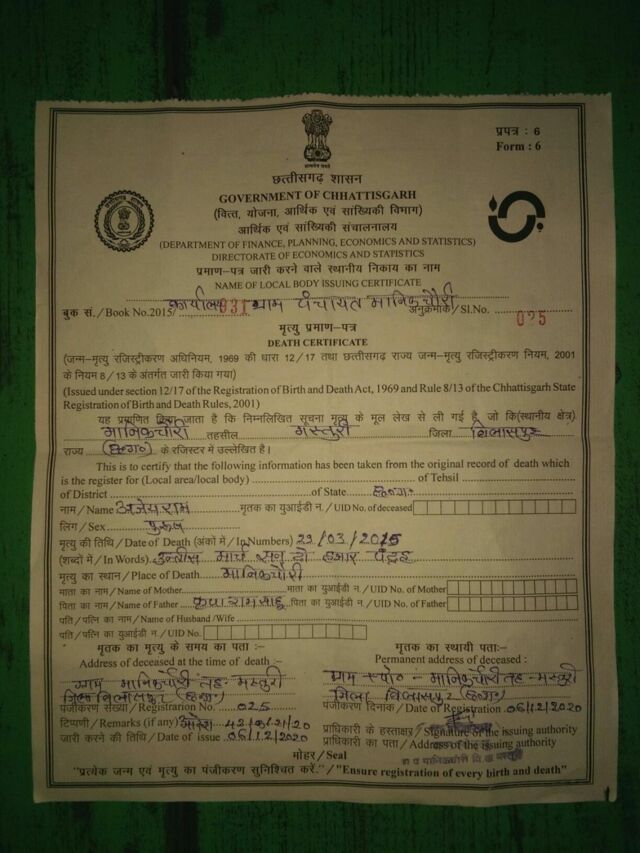 प्रपत्र : 6
Form : 6
छत्तीसगढ़ शासन
GOVERNMENT OF CHHATTISGARH
(वित्त, योजना, आर्थिक एवं सांख्यिकी विभाग)
आर्थिक एवं सांख्यिकी संचालनालय
(DEPARTMENT OF FINANCE, PLANNING, ECONOMICS AND STATISTICS)
DIRECTORATE OF ECONOMICS AND STATISTICS
प्रमाण-पत्र जारी करने वाले स्थानीय निकाय का नाम
NAME OF LOCAL BODY ISSUING CERTIFICATE
कार्यालय ग्राम पंचायत मानिकचौरी
बुक सं./Book No.2015/ 031 अनुक्रमांक/Sl.No. 025
मृत्यु प्रमाण-पत्र
DEATH CERTIFICATE
(जन्म-मृत्यु रजिस्ट्रीकरण अधिनियम, 1969 की धारा 12/17 तथा छत्तीसगढ़ राज्य जन्म-मृत्यु रजिस्ट्रीकरण नियम, 2001
के नियम 8/13 के अंतर्गत जारी किया गया)
(Issued under section 12/17 of the Registration of Birth and Death Act, 1969 and Rule 8/13 of the Chhattisgarh State
Registration of Birth and Death Rules, 2001)
यह प्रमाणित किया जाता है कि निम्नलिखित सूचना मृत्यु के मूल लेख से ली गई है, जो कि(स्थानीय क्षेत्र)
मानिकचौरी तहसील मस्तुरी जिला बिलासपुर
राज्य (छ०ग०) के रजिस्टर में उल्लेखित है।
This is to certify that the following information has been taken from the original record of death which
is the register for (Local area/local body) of Tehsil
of District of State छ०ग०
नाम/Name अजेयराम मृतक का यूआईडी न./UID No. of deceased
लिंग/Sex पुरुष
मृत्यु की तिथि/Date of Death (अंकों में/In Numbers) 29/03/2015
(शब्दों में/In Words) उन्तीस मार्च सन् दो हजार पंद्रह
मृत्यु का स्थान/Place of Death मानिकचौरी
माता का नाम/Name of Mother माता का यूआईडी न./UID No. of Mother
पिता का नाम/Name of Father कृपाराम साहू पिता का यूआईडी न./UID No. of Father
पति/पत्नि का नाम/Name of Husband/Wife
पति/पत्नि का यूआईडी न./UID No.
मृतक का मृत्यु के समय का पता :-
Address of deceased at the time of death :-
ग्राम मानिकचौरी तह- मस्तुरी
जिला बिलासपुर (छ०ग०)
मृतक का स्थायी पता:-
Permanent address of deceased :
ग्राम+पो०- मानिकचौरी तह- मस्तुरी
जिला बिलासपुर (छ०ग०)
पंजीकरण संख्या/Registrarion No. 025 पंजीकरण दिनांक/Date of Registration 06/12/2020
टिप्पणी/Remarks (if any) प्राधिकारी के हस्ताक्षर/Signature of the issuing authority
जारी करने की तिथि/Date of issue 06/12/2020 प्राधिकारी का पता/Address of the issuing authority
मोहर/Seal
"प्रत्येक जन्म एवं मृत्यु का पंजीकरण सुनिश्चित करें."/"Ensure registration of every birth and death"